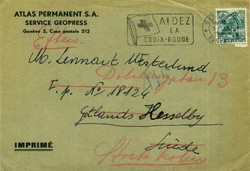 ATLAS PERMANENT S.A.
SERVICE GEOPRESS
Genève 2, Case postale 212
AIDEZ
LA
CROIX-ROUGE
Lennart Westerlund
13
F.p. No 18124
Gotlands Hesselby
Suède
Stockholm
IMPRIMÉ